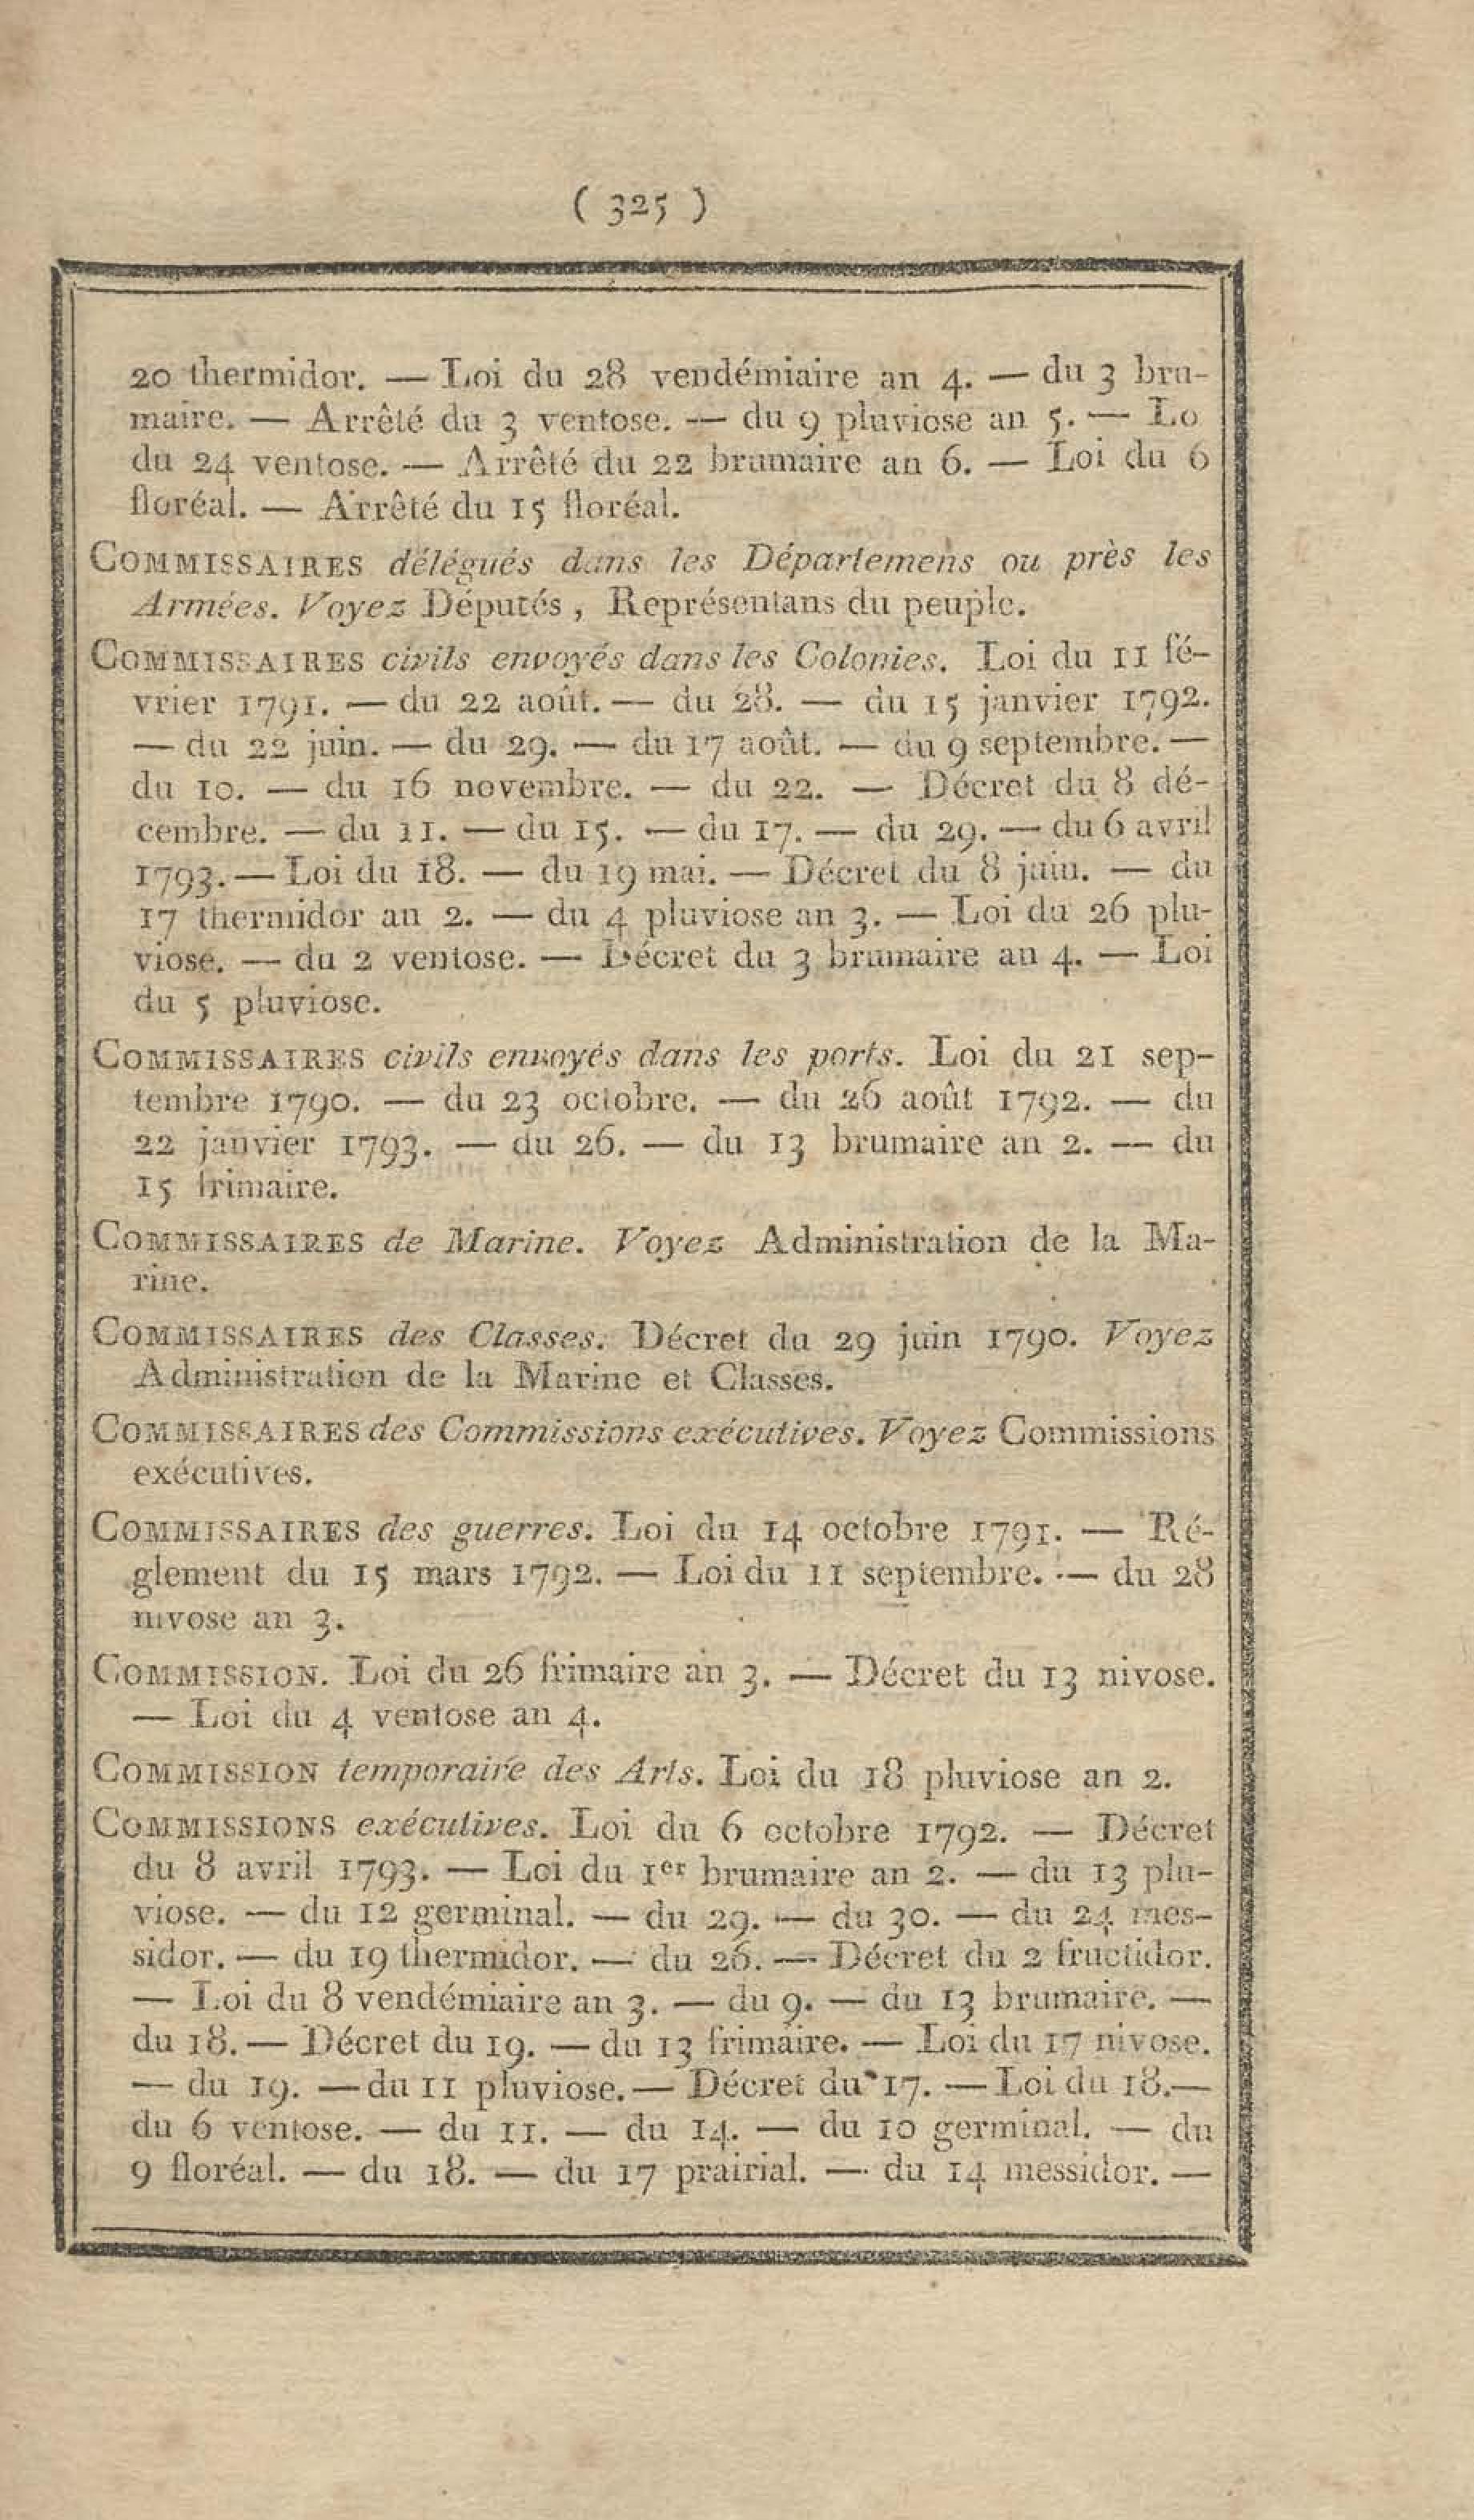 ( 325 )
20 thermidor. — Loi du 28 vendémiaire an 4. — du 3 bru-
maire. — Arrêté du 3 ventose. — du 9 pluviose an 5. — Lo
du 24 ventose. — Arrêté du 22 brumaire an 6. — Loi du 6
floréal. — Arrêté du 15 floréal.
COMMISSAIRES délégués dans les Départemens ou près les
Armées. Voyez Députés, Représentans du peuple.
COMMISSAIRES civils envoyés dans les Colonies. Loi du 11 fé-
vrier 1791. — du 22 août. — du 28. — du 15 janvier 1792.
— du 22 juin. — du 29. — du 17 août. — du 9 septembre. —
du 10. — du 16 novembre. — du 22. — Décret du 8 dé-
cembre. — du 11. — du 15. — du 17. — du 29. — du 6 avril
1793. — Loi du 18. — du 19 mai. — Décret du 8 juin. — du
17 thermidor an 2. — du 4 pluviose an 3. — Loi du 26 plu-
viose. — du 2 ventose. — Décret du 3 brumaire an 4. — Loi
du 5 pluviose.
COMMISSAIRES civils envoyés dans les ports. Loi du 21 sep-
tembre 1790. — du 23 octobre. — du 26 août 1792. — du
22 janvier 1793. — du 26. — du 13 brumaire an 2. — du
15 frimaire.
COMMISSAIRES de Marine. Voyez Administration de la Ma-
rine.
COMMISSAIRES des Classes. Décret du 29 juin 1790. Voyez
Administration de la Marine et Classes.
COMMISSAIRES des Commissions exécutives. Voyez Commissions
exécutives.
COMMISSAIRES des guerres. Loi du 14 octobre 1791. — Ré-
glement du 15 mars 1792. — Loi du 11 septembre. — du 28
nivose an 3.
COMMISSION. Loi du 26 frimaire an 3. — Décret du 13 nivose.
— Loi du 4 ventose an 4.
COMMISSION temporaire des Arts. Loi du 18 pluviose an 2.
COMMISSIONS exécutives. Loi du 6 octobre 1792. — Décret
du 8 avril 1793. — Loi du 1er brumaire an 2. — du 13 plu-
viose. — du 12 germinal. — du 29. — du 30. — du 24 mes-
sidor. — du 19 thermidor. — du 26. — Décret du 2 fructidor.
— Loi du 8 vendémiaire an 3. — du 9. — du 13 brumaire. —
du 18. — Décret du 19. — du 13 frimaire. — Loi du 17 nivose.
— du 19. — du 11 pluviose. — Décret du 17. — Loi du 18. —
du 6 ventose. — du 11. — du 14. — du 10 germinal. — du
9 floréal. — du 18. — du 17 prairial. — du 14 messidor. —